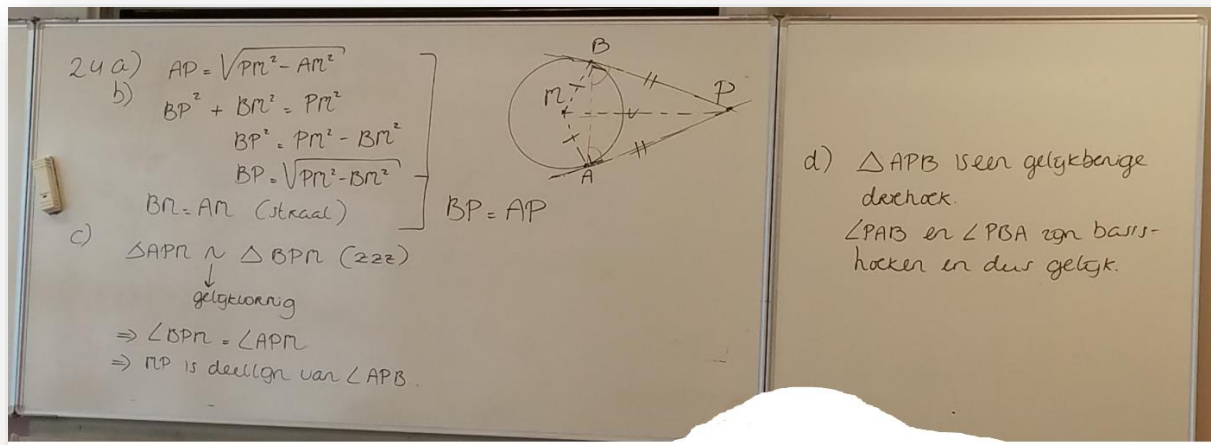 24 a) AP = √(PM² - AM²)
b) BP² + BM² = PM²
BP² = PM² - BM²
BP = √(PM² - BM²)
BM = AM (straal)
BP = AP
c) △APM ~ △BPM (zzz)
↓
gelijkvormig
⇒ ∠BPM = ∠APM
⇒ MP is deellijn van ∠APB.
B
M
P
A
d) △APB is een gelijkbenige
driehoek.
∠PAB en ∠PBA zijn basis-
hoeken en dus gelijk.